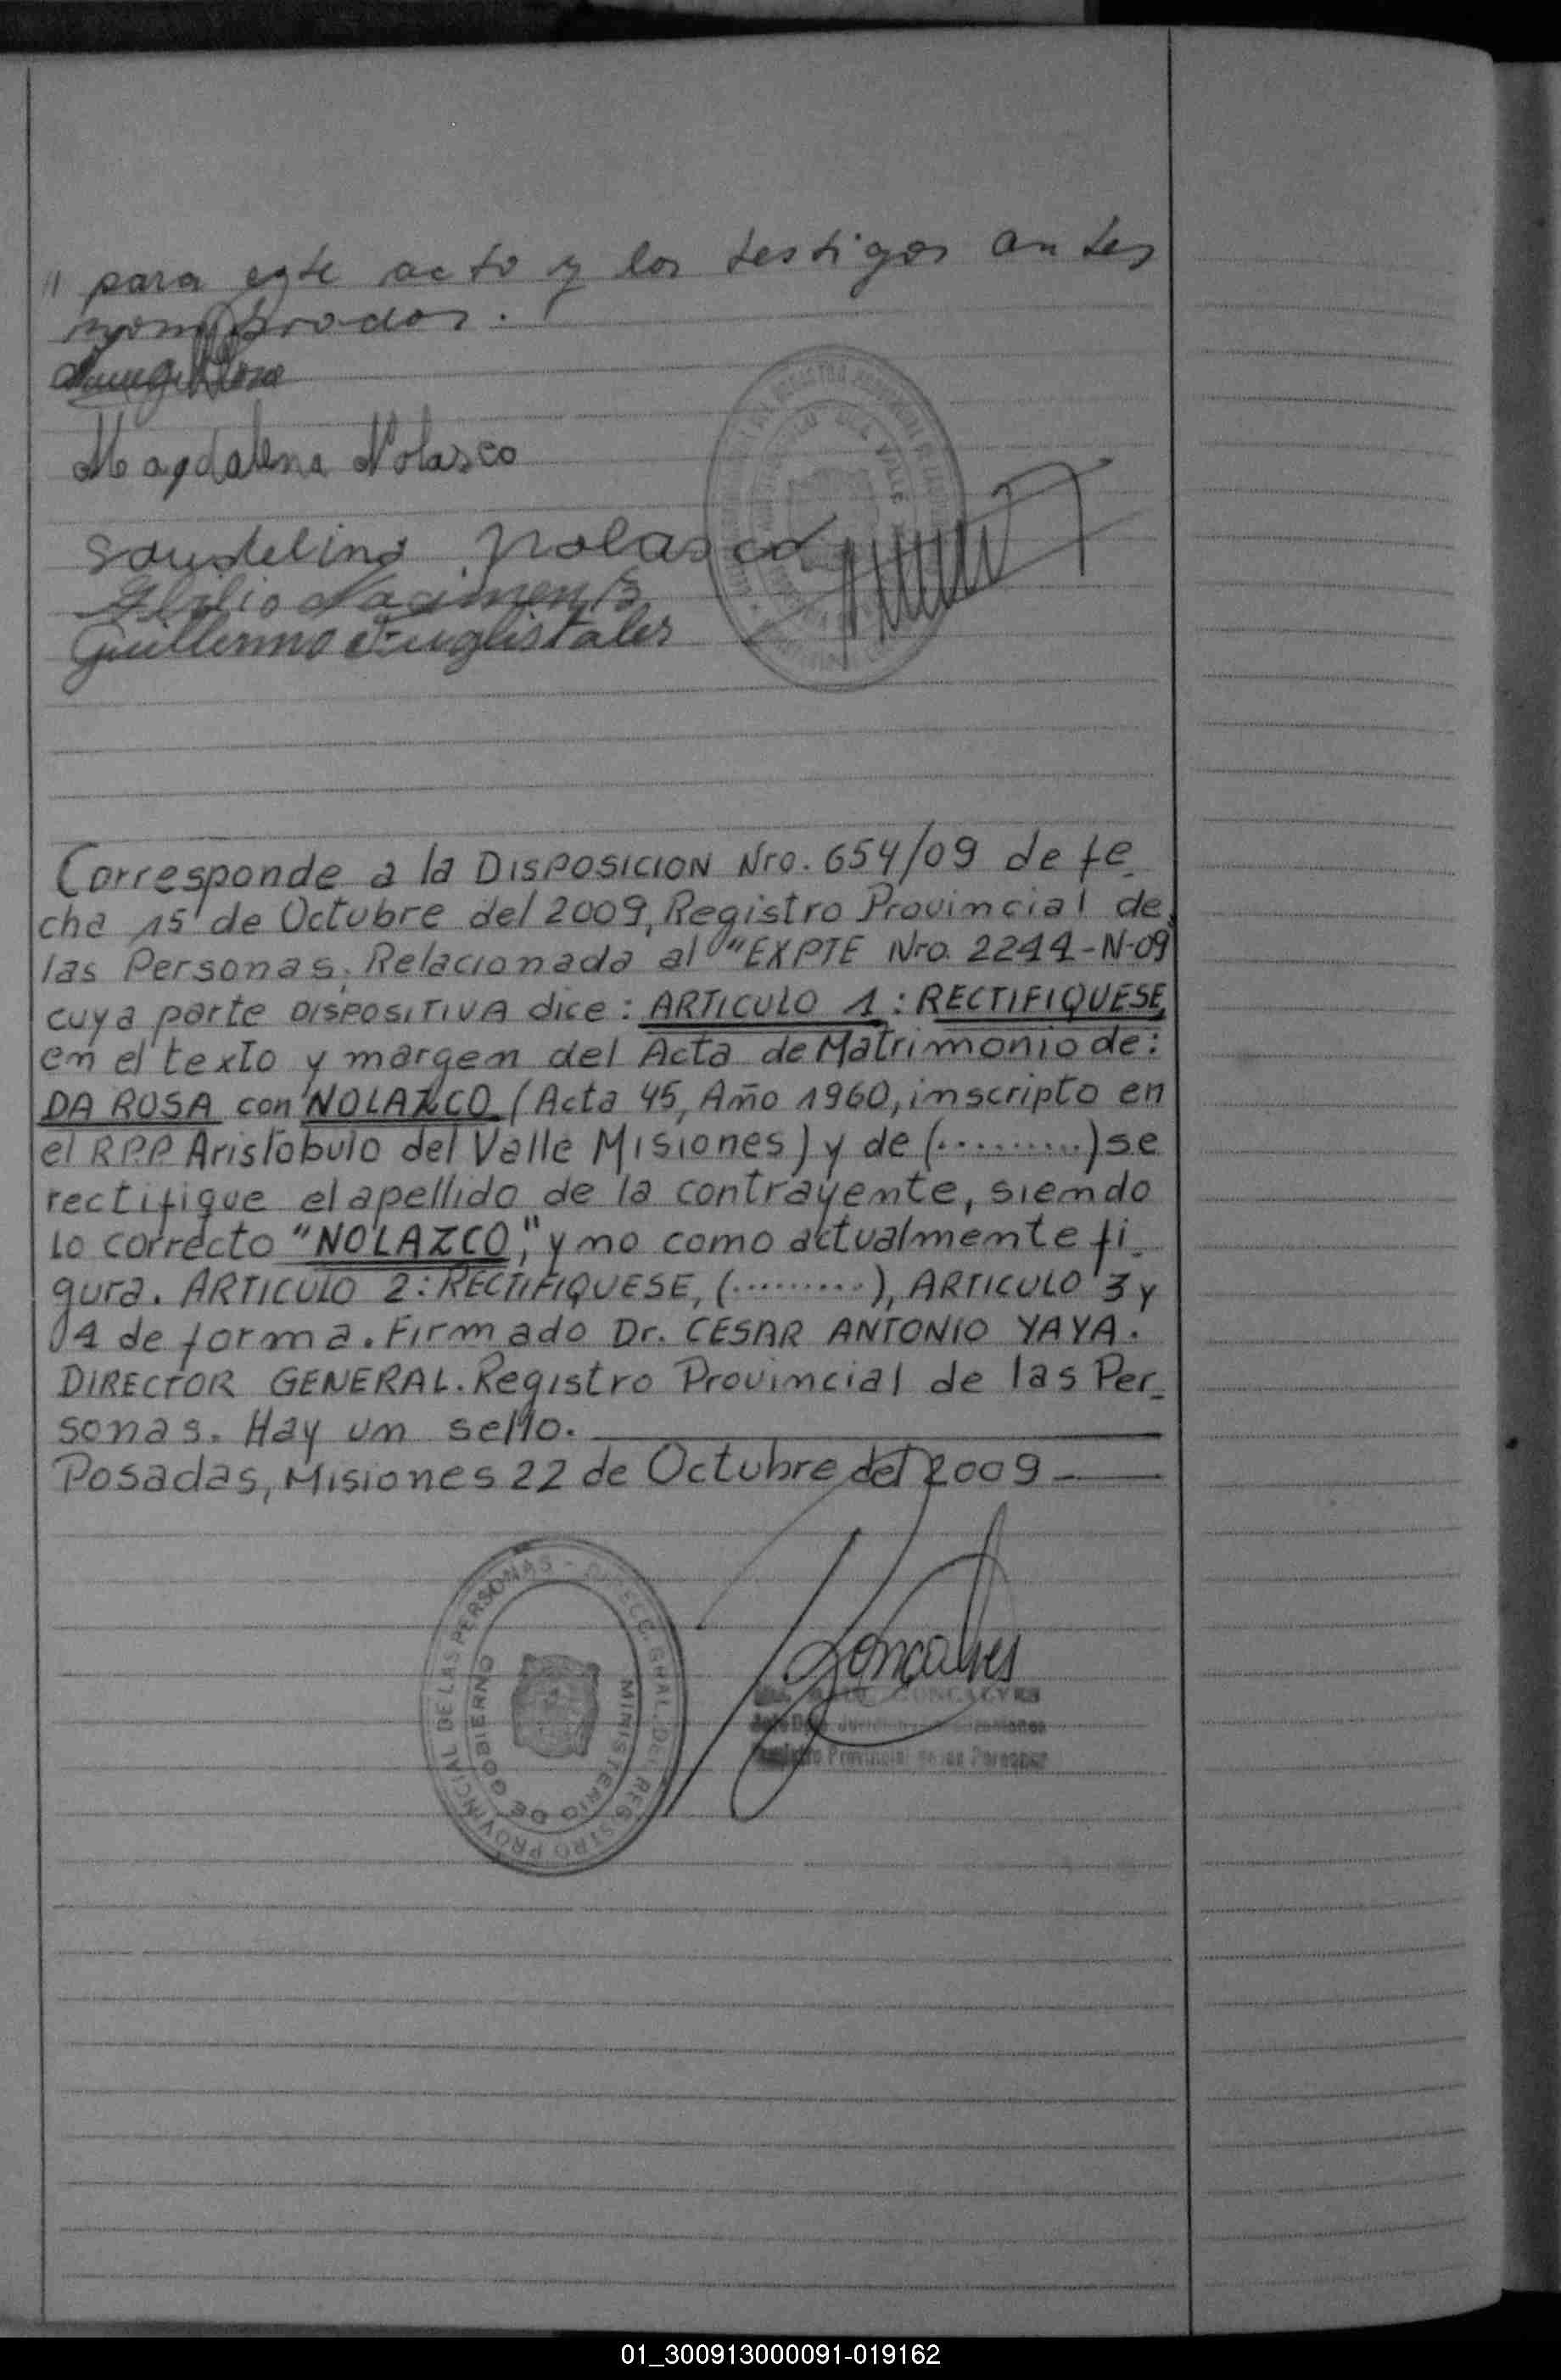 " para este acto y los testigos antes
nombrados.
Magdalena Nolasco
Saudelino Nolasco
Guillermo
Corresponde a la DISPOSICION Nro. 654/09 de fe_
cha 15 de Octubre del 2009, Registro Provincial de
las Personas, Relacionada al "EXPTE Nro. 2244-N-09
cuya parte DISPOSITIVA dice: ARTICULO 1: RECTIFIQUESE,
en el texto y margen del Acta de Matrimonio de:
DA ROSA con NOLAZCO (Acta 45, Año 1960, inscripto en
el R.P.P. Aristóbulo del Valle Misiones) y de (.........) se
rectifique el apellido de la contrayente, siendo
lo correcto "NOLAZCO," y no como actualmente fi_
gura. ARTICULO 2: RECTIFIQUESE, (.........), ARTICULO 3 y
4 de forma. Firmado Dr. CESAR ANTONIO YAYA.
DIRECTOR GENERAL. Registro Provincial de las Per_
sonas. Hay un sello.
Posadas, Misiones 22 de Octubre del 2009
DIRECC. GRAL. DEL REGISTRO PROVINCIAL DE LAS PERSONAS
MINISTERIO DE GOBIERNO
Goncalves
GONCALVES
Registro Provincial de las Personas
01_300913000091-019162